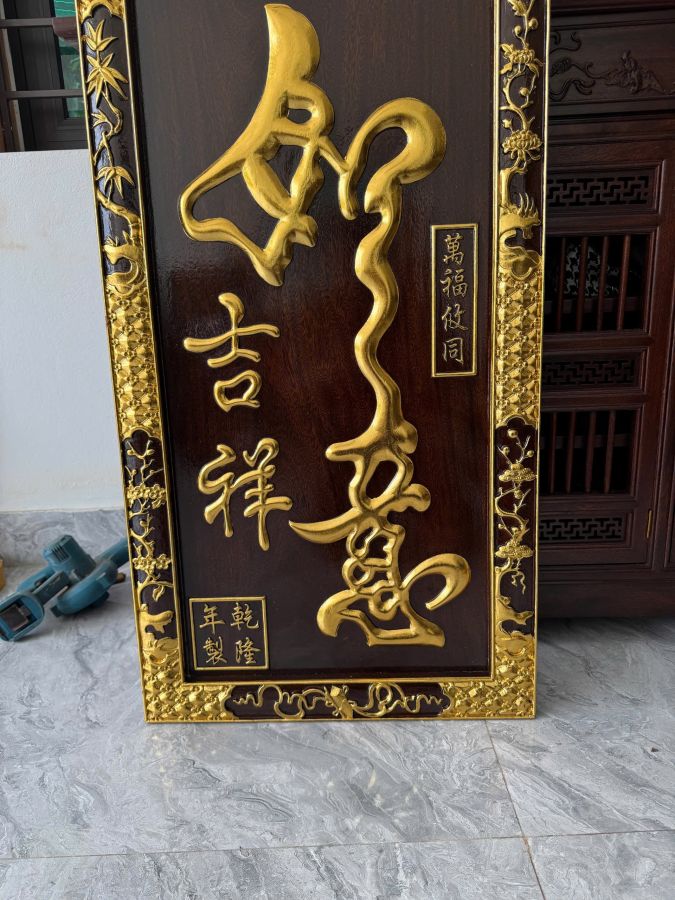 萬福攸同
如意
吉祥
乾隆
年製